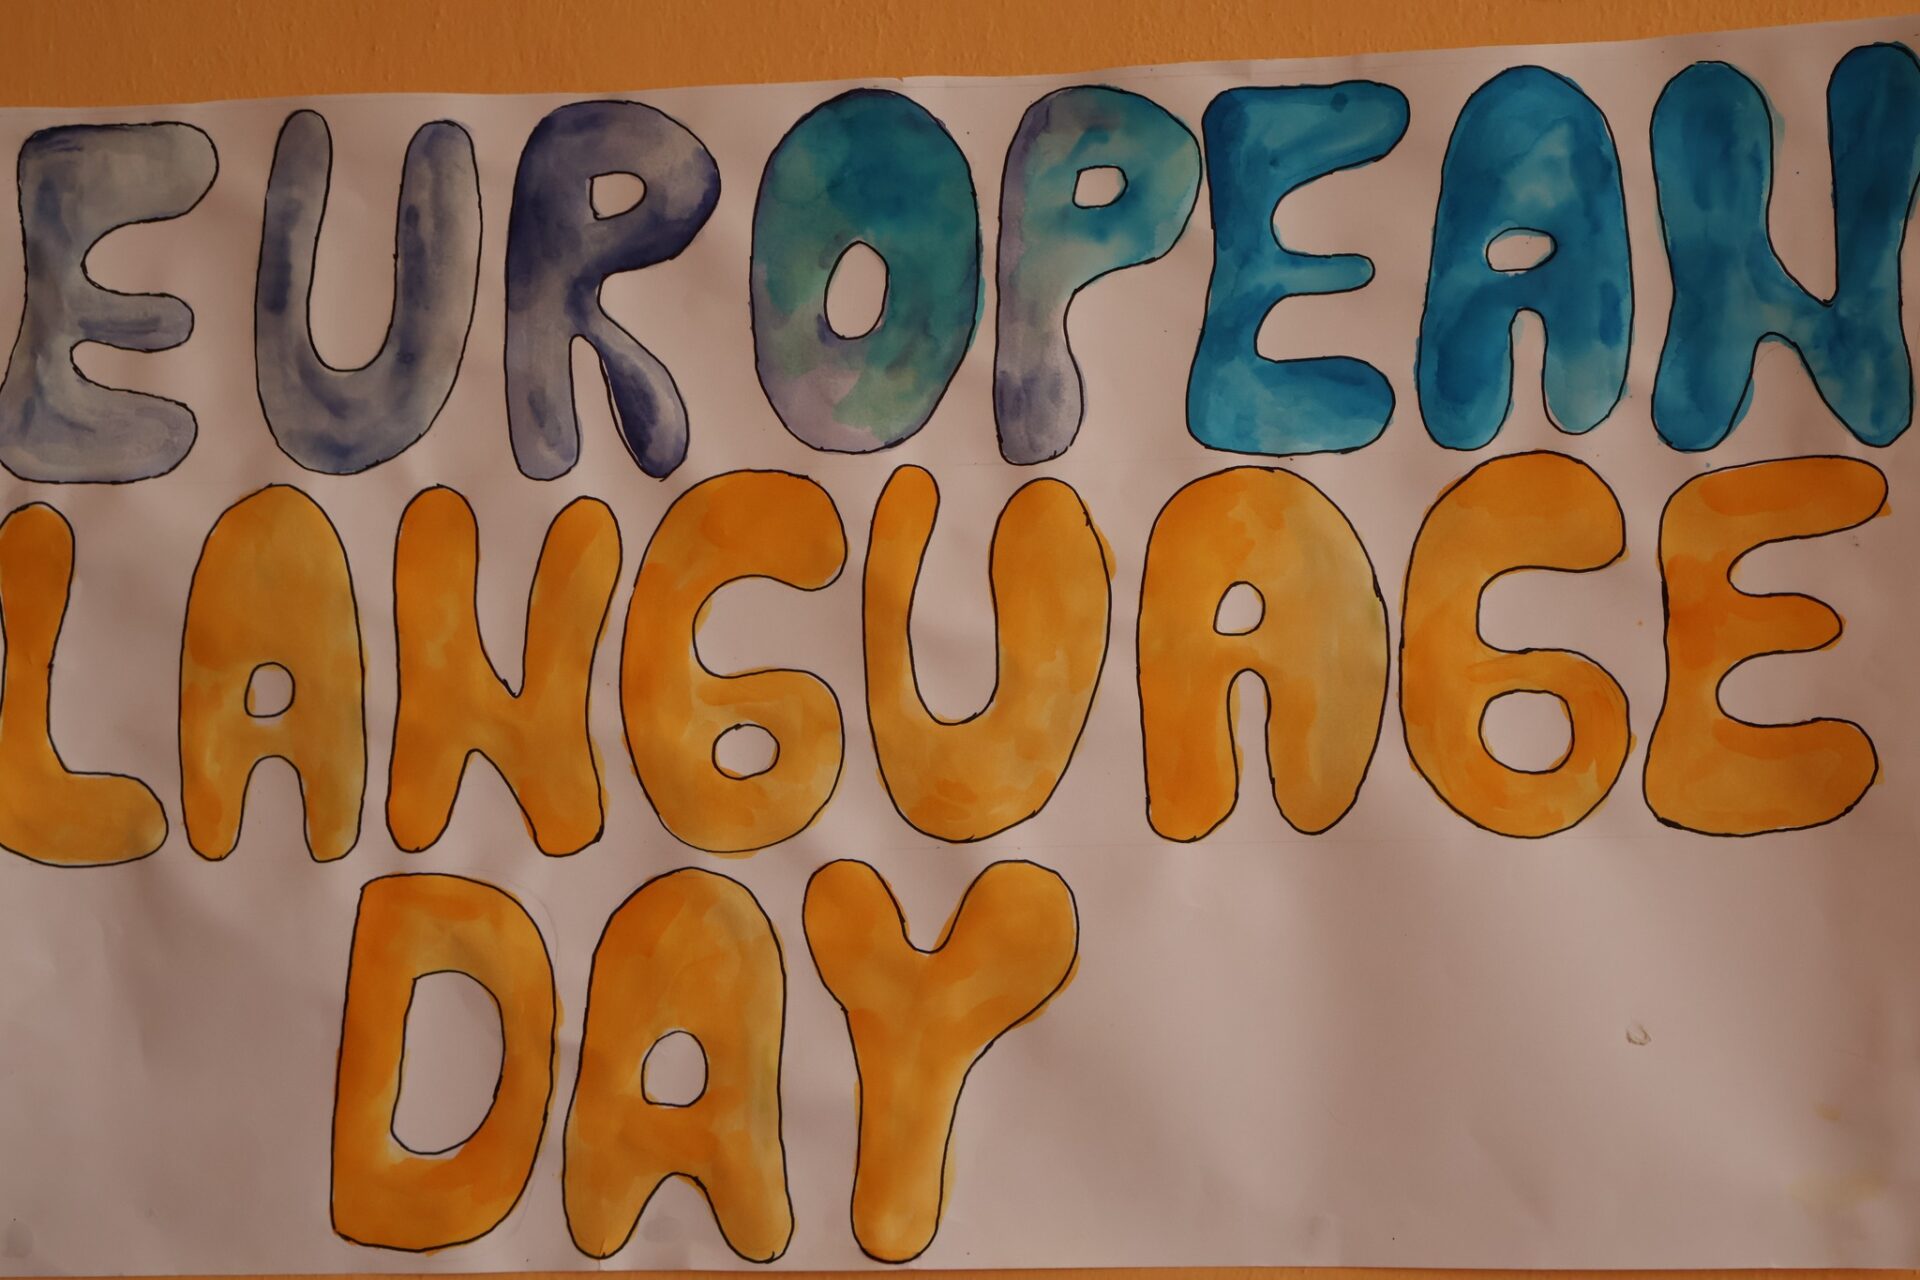 EUROPEAN
LANGUAGE
DAY